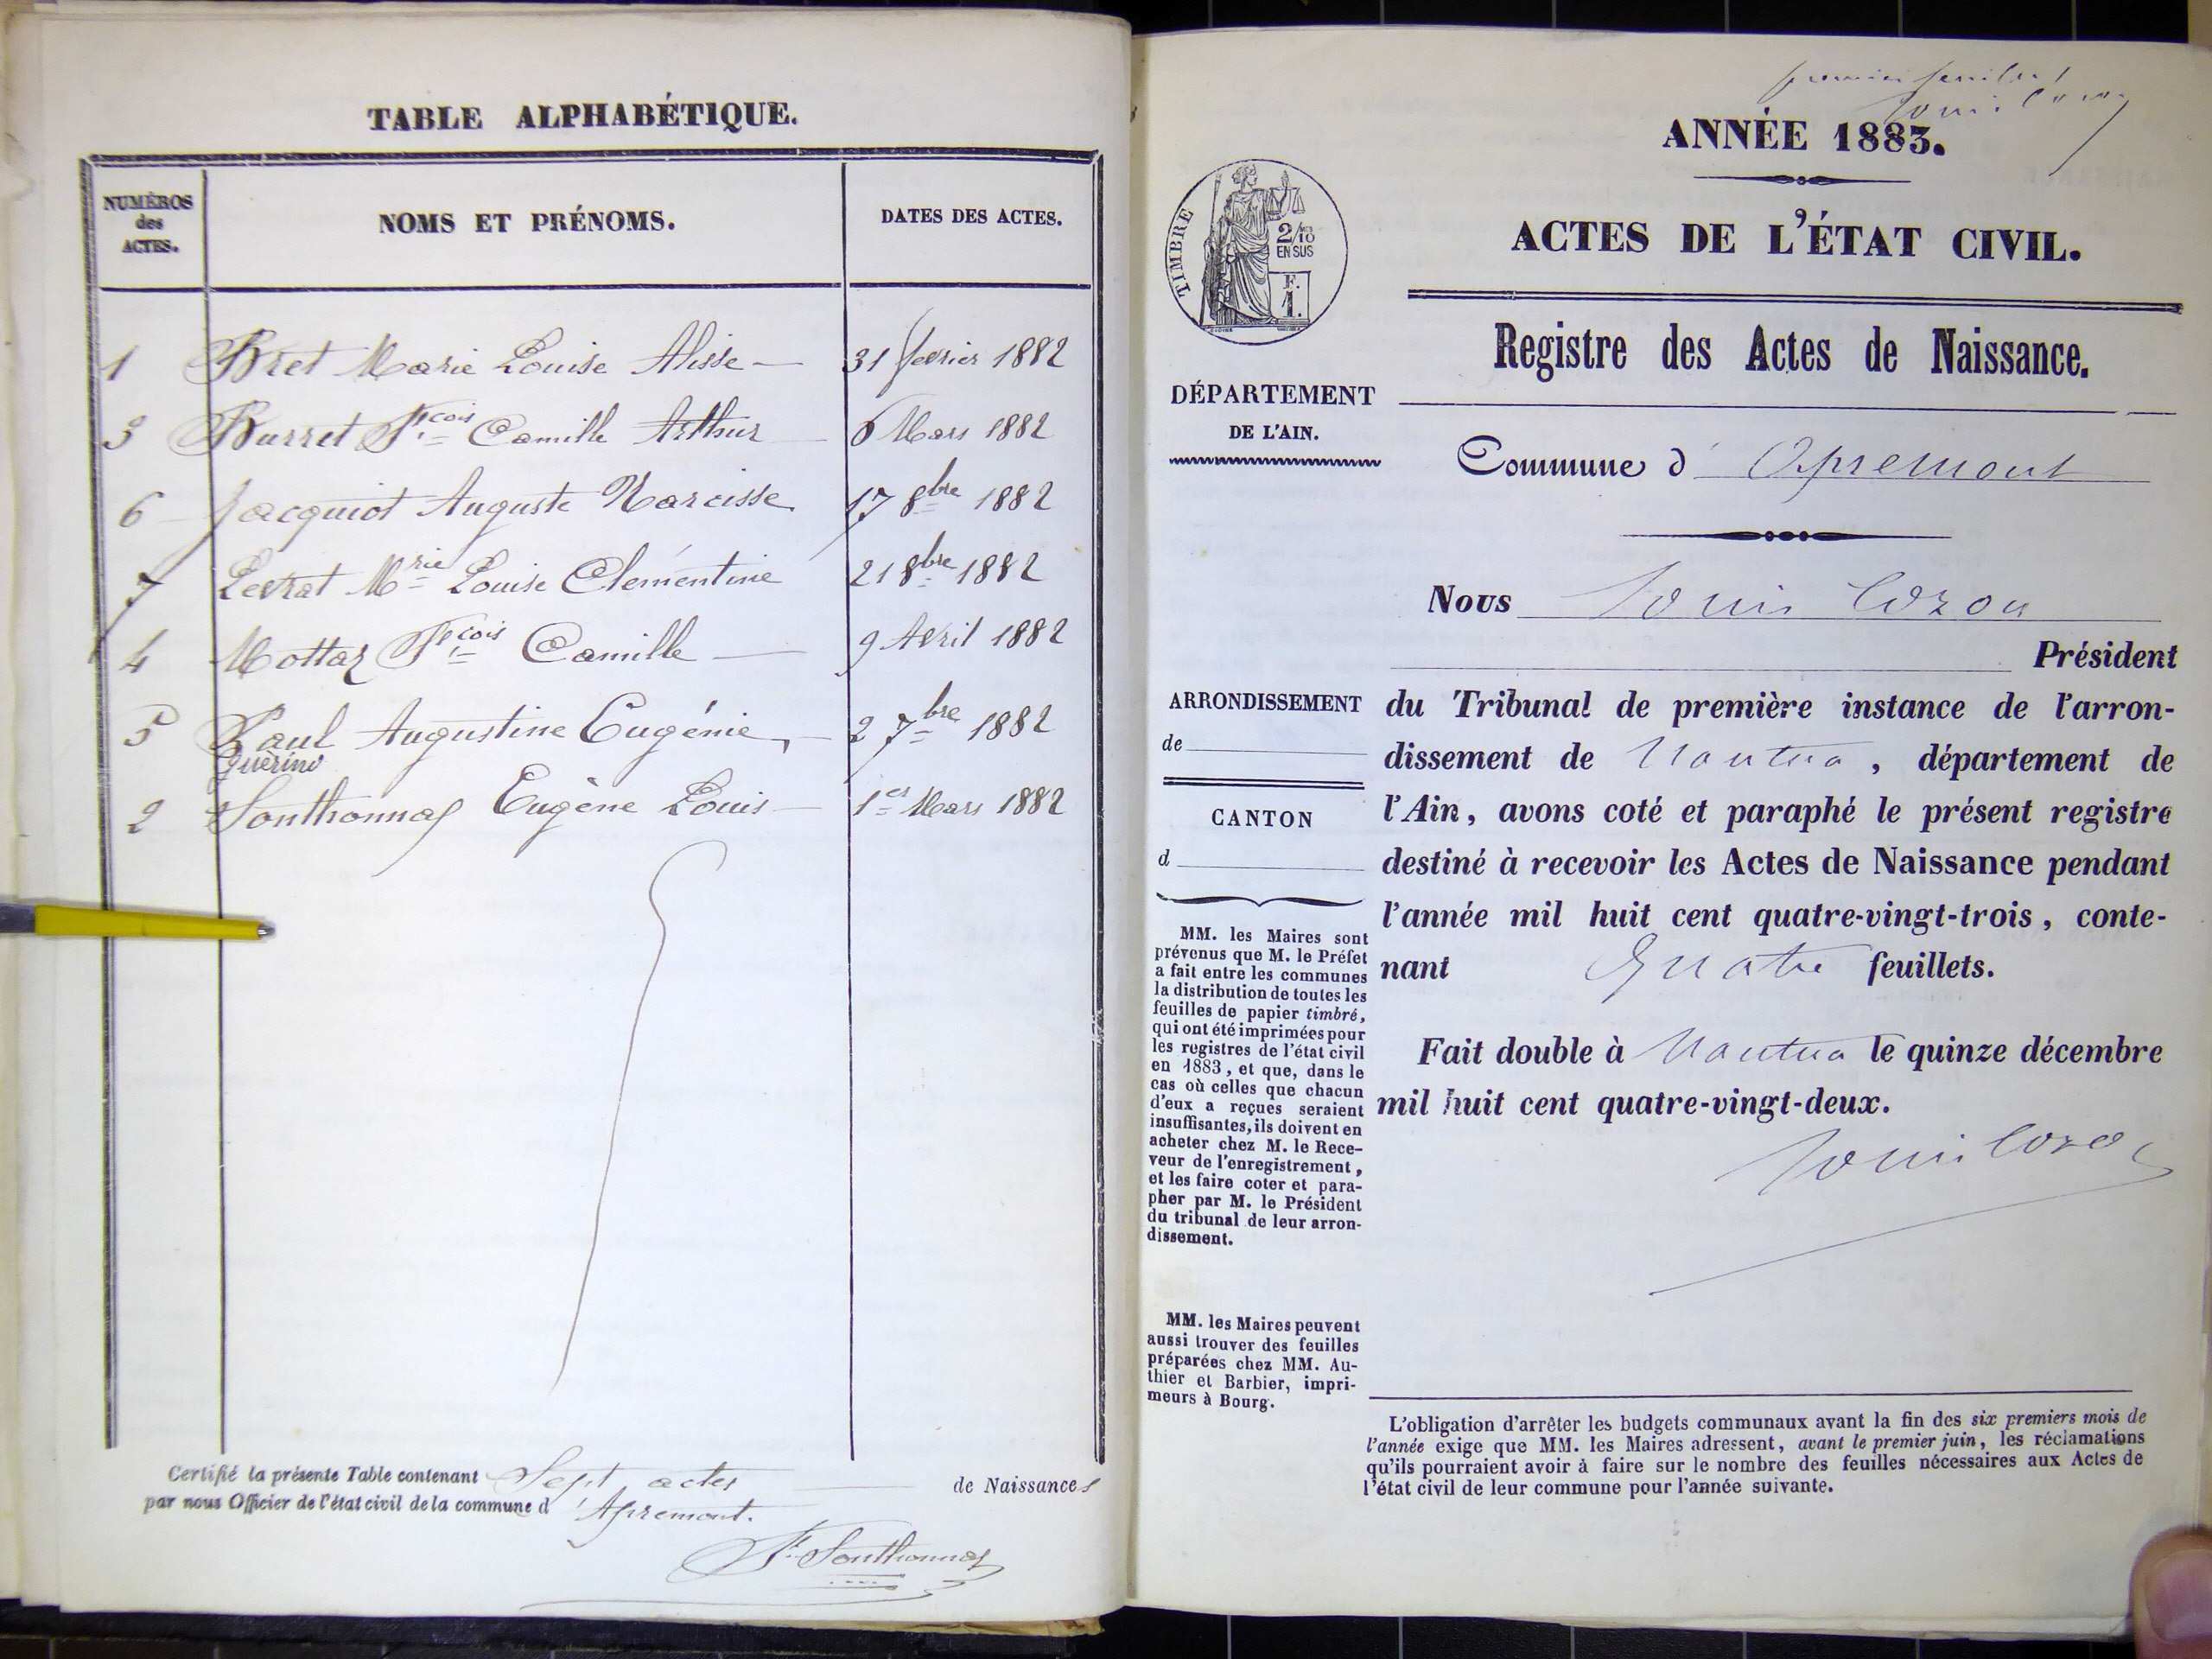 TABLE ALPHABÉTIQUE.
NUMÉROS
des
ACTES.
NOMS ET PRÉNOMS.
DATES DES ACTES.
1 Bret Marie Louise Alisse — 31 février 1882
3 Burret Fçois Camille Arthur — 6 Mars 1882
6 Jacquiot Auguste Narcisse 17 8bre 1882
7 Levrat Mrie Louise Clémentine 21 8bre 1882
4 Mottaz Fçois Camille — 9 Avril 1882
5 Paul Augustine Eugénie, — 2 7bre 1882
Guérino
2 Sonthonnas Eugène Louis — 1er Mars 1882
Certifié la présente Table contenant Sept actes de Naissances
par nous Officier de l'état civil de la commune d'Apremont.
Fs Sonthonnas
premier feuillet
Louis Cozon
ANNÉE 1883.
TIMBRE
2/10
EN SUS
F.
1.
ACTES DE L'ÉTAT CIVIL.
Registre des Actes de Naissance.
DÉPARTEMENT
DE L'AIN.
Commune d' Apremont
Nous Louis Cozon
Président
ARRONDISSEMENT
de
CANTON
d
du Tribunal de première instance de l'arron-
dissement de Nantua, département de
l'Ain, avons coté et paraphé le présent registre
destiné à recevoir les Actes de Naissance pendant
l'année mil huit cent quatre-vingt-trois, conte-
nant Quatre feuillets.
Fait double à Nantua le quinze décembre
mil huit cent quatre-vingt-deux.
Louis Cozon
MM. les Maires sont
prévenus que M. le Préfet
a fait entre les communes
la distribution de toutes les
feuilles de papier timbré,
qui ont été imprimées pour
les registres de l'état civil
en 1883, et que, dans le
cas où celles que chacun
d'eux a reçues seraient
insuffisantes, ils doivent en
acheter chez M. le Rece-
veur de l'enregistrement,
et les faire coter et para-
pher par M. le Président
du tribunal de leur arron-
dissement.
MM. les Maires peuvent
aussi trouver des feuilles
préparées chez MM. Au-
thier et Barbier, impri-
meurs à Bourg.
L'obligation d'arrêter les budgets communaux avant la fin des six premiers mois de
l'année exige que MM. les Maires adressent, avant le premier juin, les réclamations
qu'ils pourraient avoir à faire sur le nombre des feuilles nécessaires aux Actes de
l'état civil de leur commune pour l'année suivante.